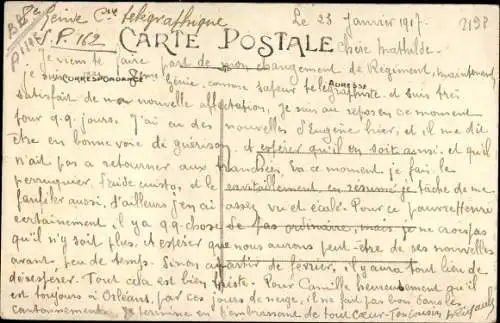 8e Génie Cie télégraphique Le 23 Janvier 191
S.P. 162 CARTE POSTALE Chère Mathilde.
je viens te faire part de mon changement de Régiment, maintenant
CORRESPONDANCE ADRESSE
je suis 8ème Génie, comme sapeur télégraphiste et suis très
satisfait de ma nouvelle affectation. Je suis au repos en ce moment
pour q.q. jours. J'ai eu des nouvelles d'Eugène hier, et il me dit
être en bonne voie de guérison et espérer qu'il en soit ainsi. et qu'il
n'ait pas a retourner aux tranchées. En ce moment je fais le
perruquier, l'aide cuisto, et le ravitaillement, en résumé je tâche de me
faufiler aussi, d'ailleurs j'en ai assez vu et écalé. Pour ce pauvre Henri
certainement, il y a q.q. chose de pas ordinaire, mais je ne crois pas
qu'il n'y soit plus, et espérer que nous aurons peut-être de ses nouvelles
avant peu de temps. Sinon a partir de février, il y aura tout lieu de
désespérer. Tout cela est bien triste. Pour Camille heureusement qu'il
est toujours à Orléans, par ces jours de neige, il ne fait pas bon dans les
cantonnements. Je termine en t'embrassant de tout Cœur. Ton Cousin